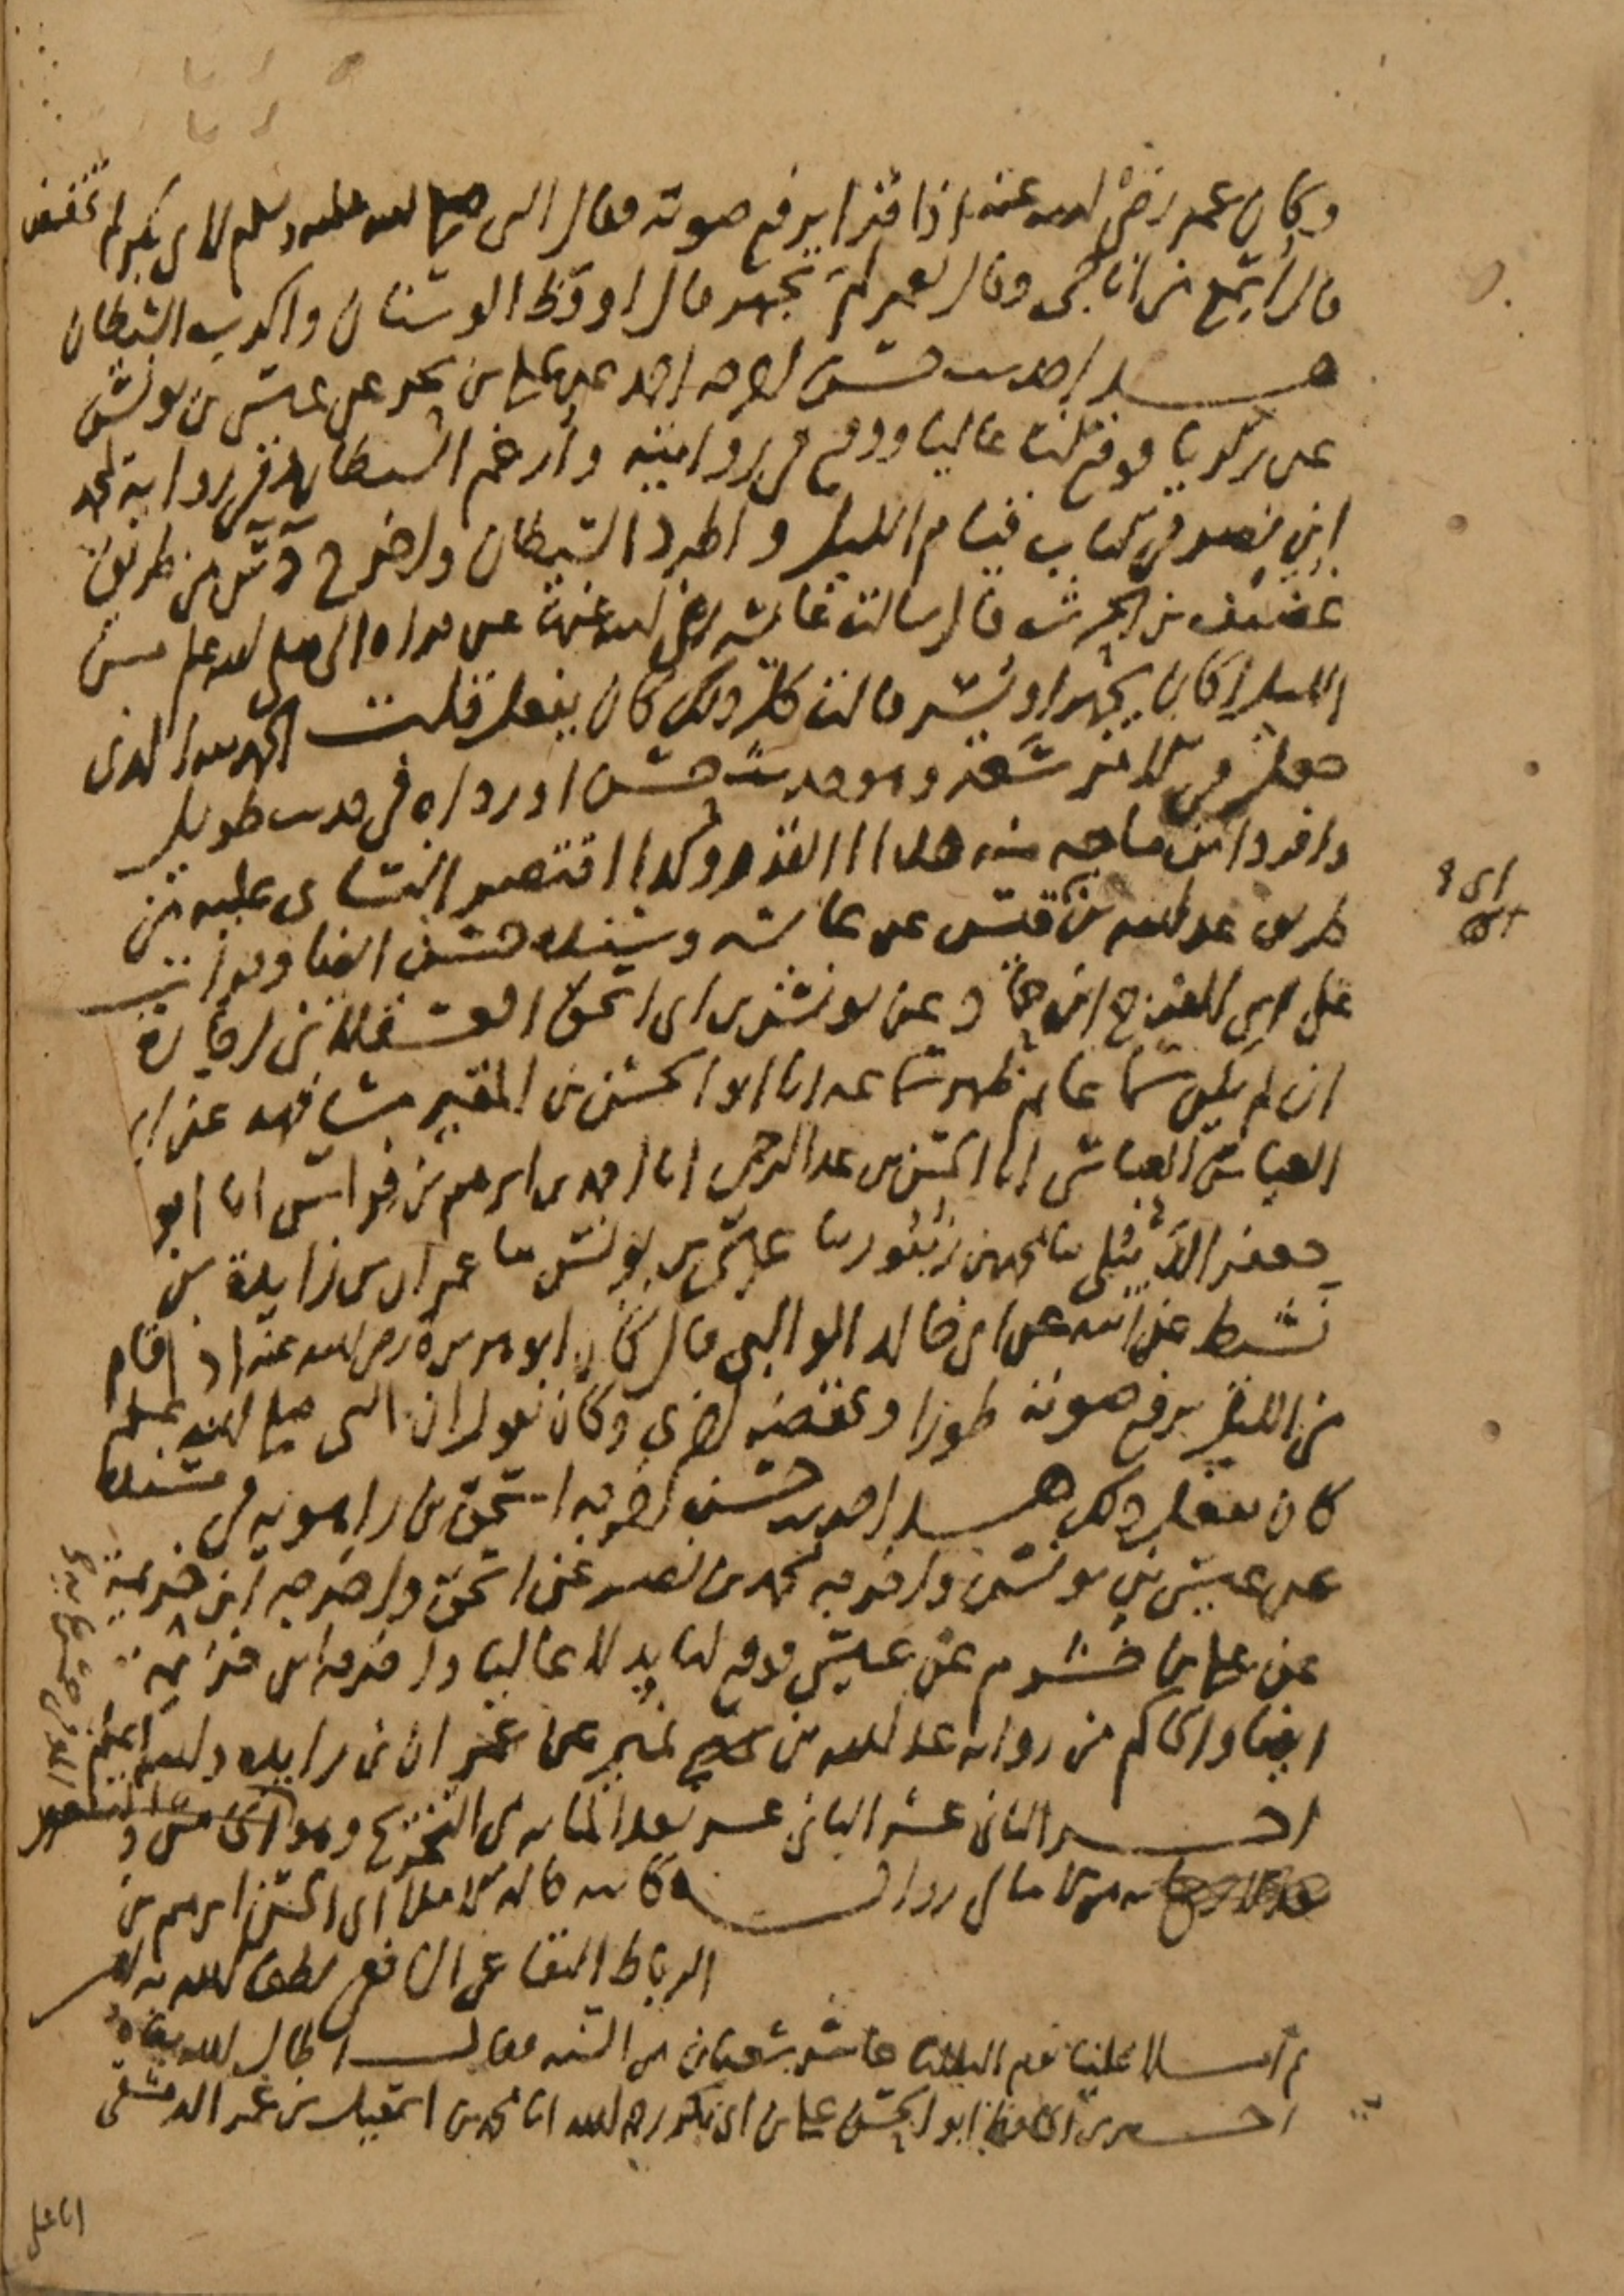 وكان عمر رضي الله عنه اذا قرا يرفع صوته فقال النبي صلى الله عليه وسلم لابي بكر لم تخفض
قال اسمع من اناجي وقال لعمر لم تجهر قال اوقظ الوسنان واكرب الشيطان
هذا حديث حسن اخرجه احمد عن علي بن بحر عن عيسى بن يونس
عن زكريا فوقع لنا عاليا ووقع في روايته وارغم الشيطان وفي رواية محمد
ابن نصر في كتاب قيام الليل واطرد الشيطان واخرج د س من طريق
غضيف بن الحرث قال سالت عايشة رضي الله عنها عن قراة النبي صلى الله عليه وسلم من
الليل اكان يجهر او يسر قالت كل ذلك كان يفعل قلت الحمد لله الذي
جعل في الامر سعة وهو حديث حسن اورداه في حديث طويل
وافرد ابن ماجه منه هذا القدر وكذا اقتصر النسائي عليه من
طريق عبد الله بن قيس عن عايشة وسنده حسن ايضا وقرات
على ام الفرج عن يونس بن ابي اسحق العسقلاني اجازة
ان لم يكن سماعا ثم ظهر سماعه انا ابو الحسن بن المقير مشافهة عن ابي
العباس العباسي انا الحسن بن عبد الرحمن انا احمد بن ابرهيم بن فراس انا ابو
جعفر الديبلي ثنا محمد بن زنبور ثنا عيسى بن يونس ثنا عمران بن زايدة بن
نشيط عن ابيه عن ابي خالد الوالبي قال كان ابو هريرة رضي الله عنه اذا قام
من الليل يرفع صوته طورا ويخفضه اخرى وكان يقول ان النبي صلى الله عليه وسلم
كان يفعل ذلك هذا حديث حسن اخرجه اسحق بن راهويه في مسنده
عن عيسى بن يونس واخرجه محمد بن نصر عن اسحق واخرجه ابن خزيمة
عن علي بن خشرم عن عيسى فوقع لنا بدلا عاليا واخرجه ابن خزيمة
ايضا والحاكم من رواية عبد الله بن نمير عن عمران بن زايدة والله اعلم
اخر الثاني عشر الثاني عشر بعد المايه من التخريج وهو
كاتبه قاله كاملا ابي الحسن ابرهيم بن
الرباط البقاعي الشافعي لطف الله به
ثم املا علينا يوم الثلاثا عاشر شعبان من السنه فقال اطال الله بقاه
اخبرني الحافظ ابو الحسن علي بن ابي بكر رحمه الله انا محمد بن اسمعيل بن عمر الدمشقي
انا علي